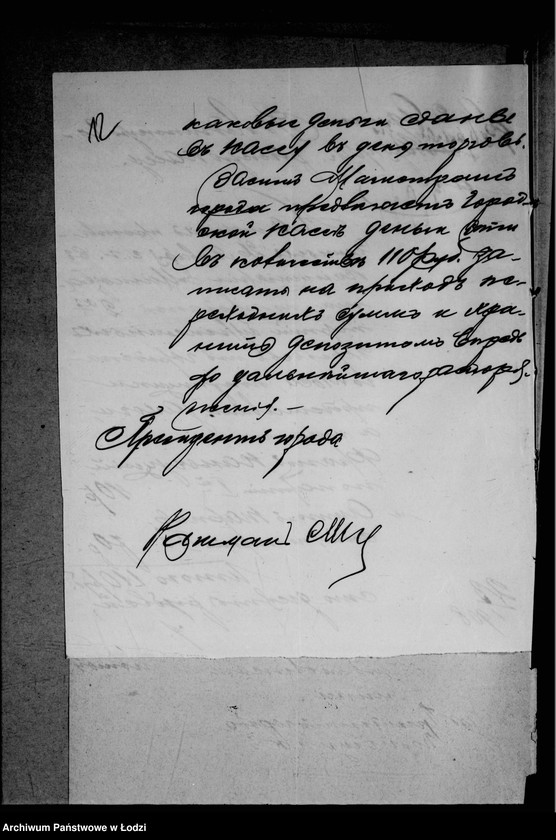 12
каковыя деньги
въ кассу въ день торговъ.
Магистратъ
города предлагаетъ Город-
ской Кассѣ деньги эти
въ количествѣ 110 руб. за-
писать на приходъ пе-
реходныхъ суммъ и хра-
нить депозитомъ впредь
до дальнѣйшаго распоря-
женія. —
Президентъ города
Archiwum Państwowe w Łodzi